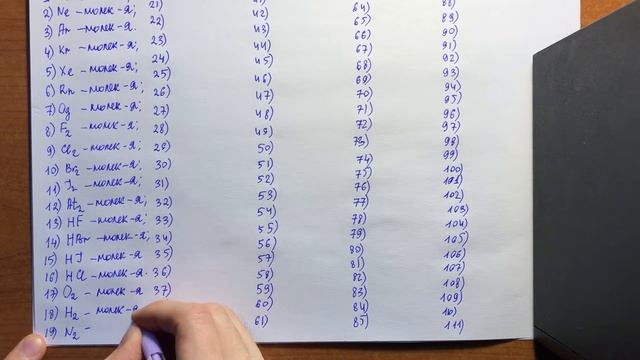 2) Ne – молек-я;
3) Ar – молек-я.
4) Kr – молек-я;
5) Xe – молек-я;
6) Rn – молек-я;
7) O3 – молек-я;
8) F2 – молек-я;
9) Cl2 – молек-я;
10) Br2 – молек-я;
11) I2 – молек-я;
12) At2 – молек-я;
13) HF – молек-я;
14) HBr – молек-я;
15) HI – молек-я
16) HCl – молек-я.
17) O2 – молек-я
18) H2 – молек-я
19) N2 –
21)
22)
23)
24)
25)
26)
27)
28)
29)
30)
31)
32)
33)
34)
35)
36)
37)
42)
43)
44)
45)
46)
47)
48)
49)
50)
51)
52)
53)
54)
55)
56)
57)
58)
59)
60)
61)
64)
65)
66)
67)
68)
69)
70)
71)
72)
73)
74)
75)
76)
77)
78)
79)
80)
81)
82)
83)
84)
85)
88)
89)
90)
91)
92)
93)
94)
95)
96)
97)
98)
99)
100)
101)
102)
103)
104)
105)
106)
107)
108)
109)
111)